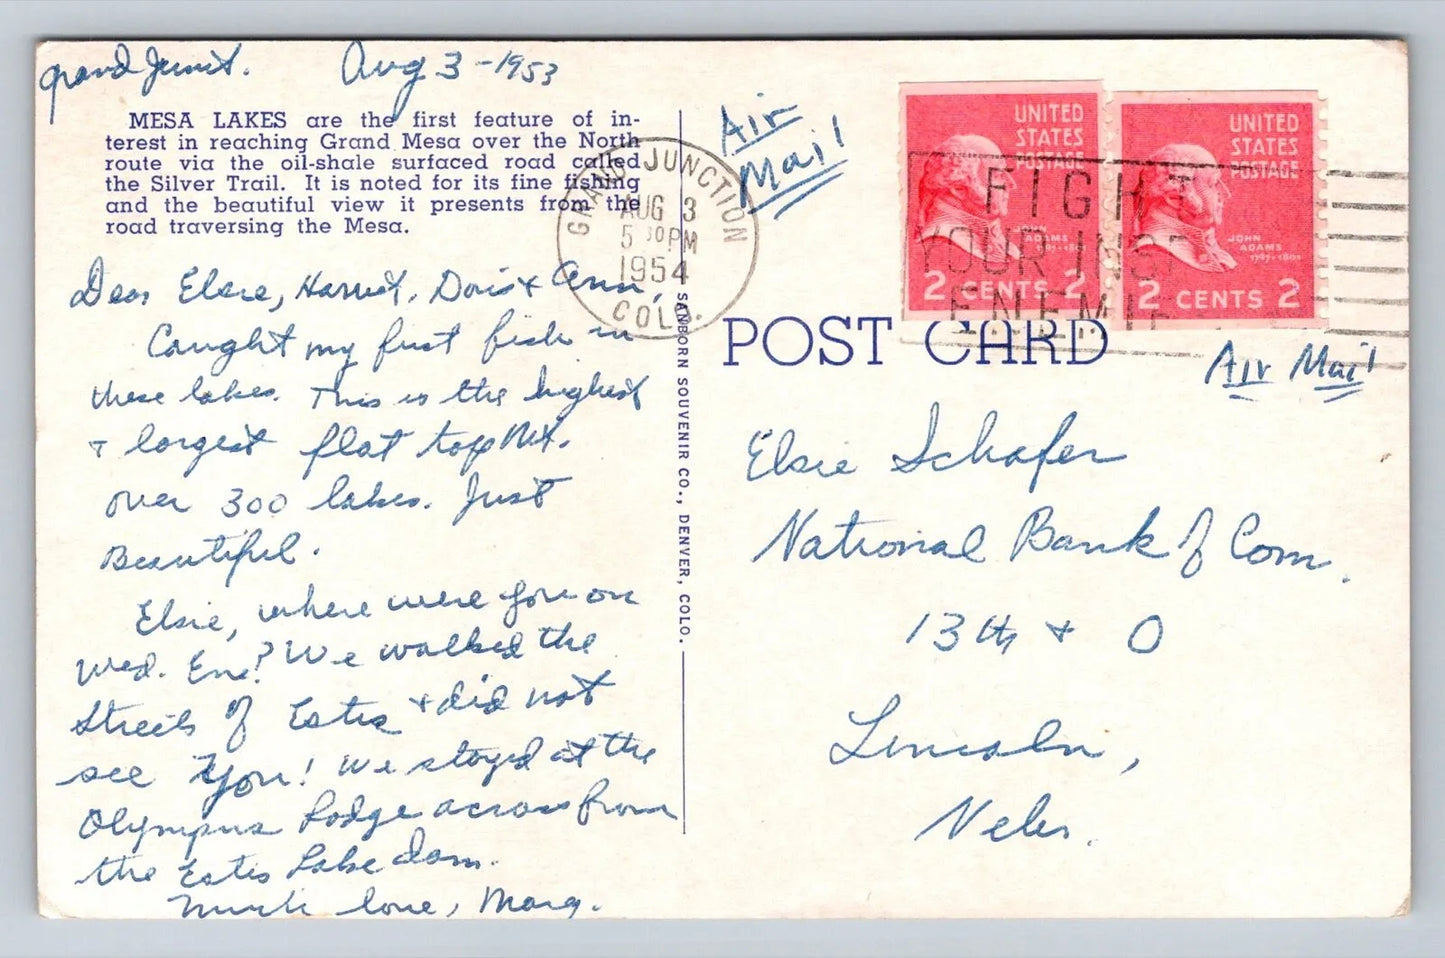 Grand Junct. Aug 3 - 1953
MESA LAKES are the first feature of in-
terest in reaching Grand Mesa over the North
route via the oil-shale surfaced road called
the Silver Trail. It is noted for its fine fishing
and the beautiful view it presents from the
road traversing the Mesa.
Dear Elsie, Harriet, Doris & Ann,
Caught my first fish in
these lakes. This is the highest
& largest flat top Mt.
over 300 lakes. Just
Beautiful.
Elsie, where were you on
Wed. Eve? We walked the
Streets of Estes & did not
see you! We stayed at the
Olympus Lodge across from
the Estes Lake dam.
Much love, Marg.
SANBORN SOUVENIR CO., DENVER, COLO.
Air
Mail
GRAND JUNCTION
AUG 3
5 30 PM
1954
COLO.
UNITED
STATES
POSTAGE
JOHN
ADAMS
1797-1801
2 CENTS 2
UNITED
STATES
POSTAGE
JOHN
ADAMS
1797-1801
2 CENTS 2
FIGHT
YOUR INS
ENEMIE
POST CARD
Air Mail
Elsie Schafer
National Bank of Com.
13th & O
Lincoln,
Nebr.